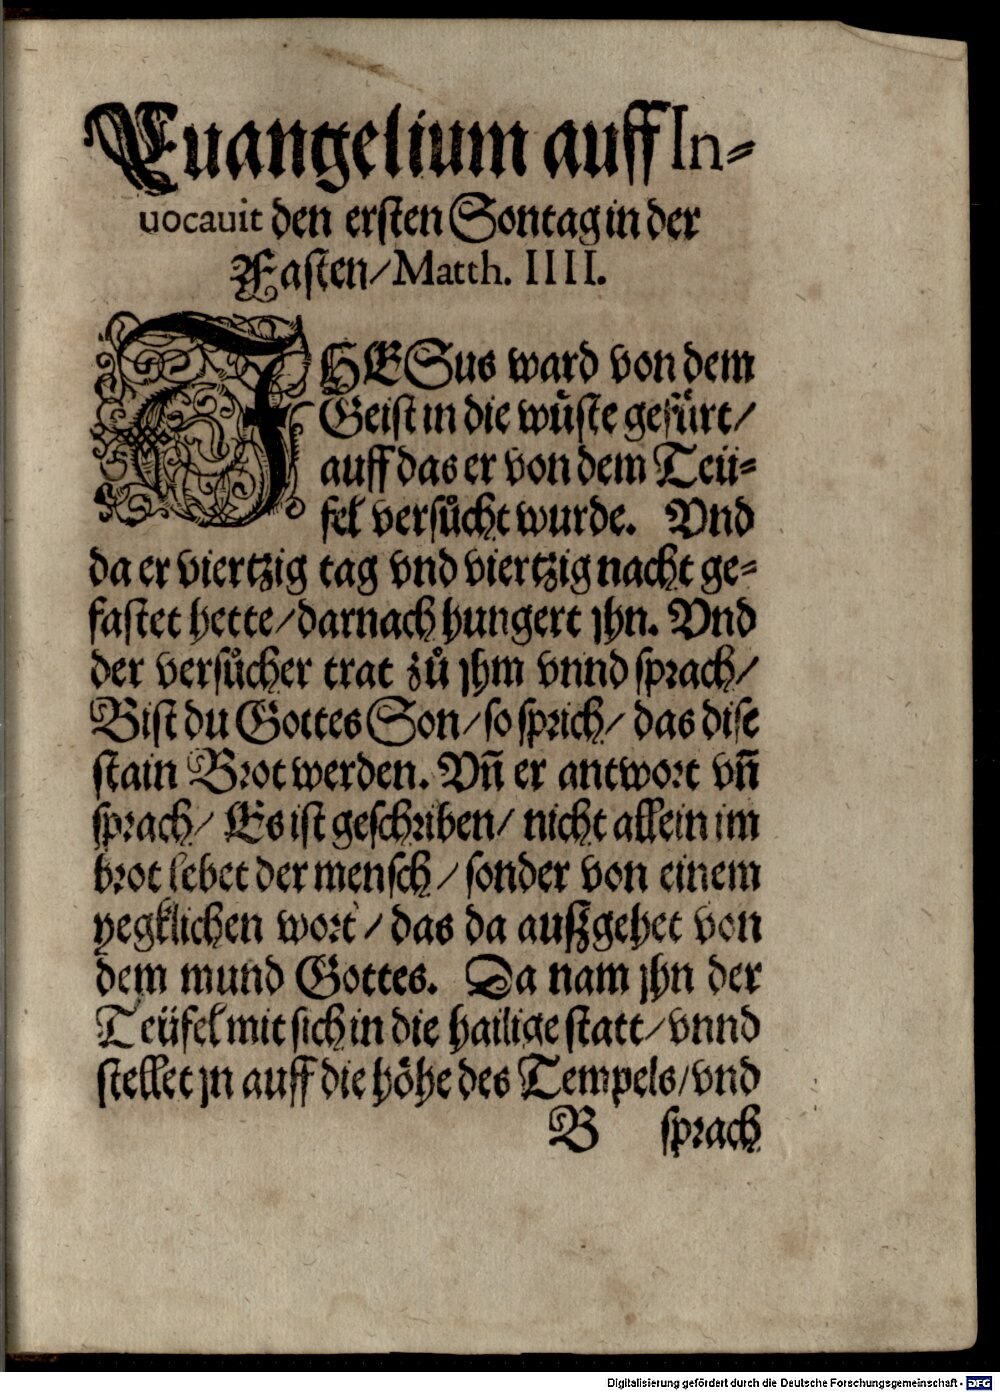 Euangelium auff In⸗
uocauit den ersten Sontag in der
Fasten/ Matth. IIII.
JHESus ward von dem
Geist in die wuͤste gefuͤrt/
auff das er von dem Teuͤ⸗
fel versuͦcht wurde. Vnd
da er viertzig tag vnd viertzig nacht ge⸗
fastet hette/ darnach hungert jhn. Vnd
der versuͦcher trat zuͦ jhm vnnd sprach/
Bist du Gottes Son/ so sprich/ das dise
stain Brot werden. Vñ er antwort vñ
sprach/ Es ist geschriben/ nicht allein im
brot lebet der mensch/ sonder von einem
yegklichen wort/ das da außgehet von
dem mund Gottes. Da nam jhn der
Teuͤfel mit sich in die hailige statt/ vnnd
stellet jn auff die hoͤhe des Tempels/ vnd
B sprach
Digitalisierung gefördert durch die Deutsche Forschungsgemeinschaft - DFG